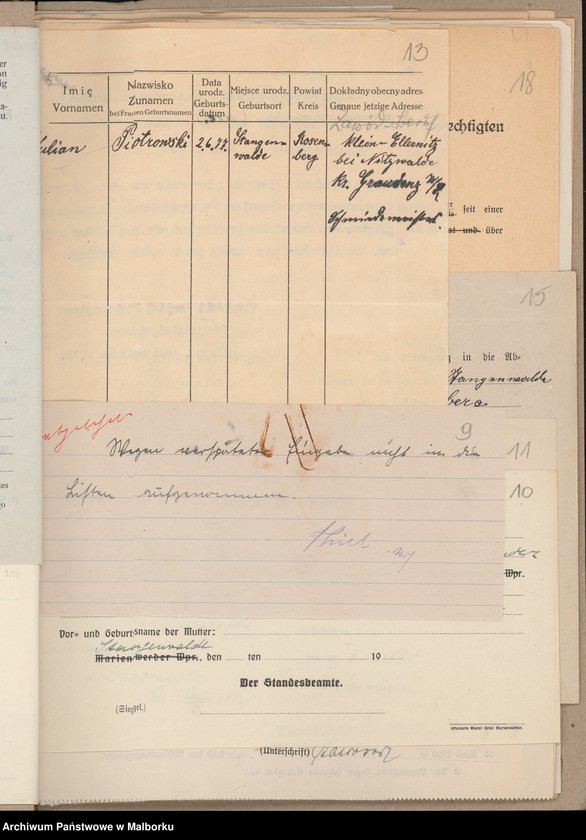 13
Imię
Vornamen
Nazwisko
Zunamen
bei Frauen Geburtsnamen
Data
urodz.
Geburts-
datum
Miejsce urodz.
Geburtsort
Powiat
Kreis
Dokładny obecny adres
Genaue jetzige Adresse
Zawód-Beruf
ulian
Piotrowski
2.6.77
Stangen-
walde
Rosen-
berg
Klein-Ellernitz
bei Nitzwalde
Kr. Graudenz W/Pr.
Schmiedemeister.
18
echtigten
seit einer
at und über
15
g in die Ab-
Stangenwalde
berg
9
abgelehnt
Wegen verspäteter Eingabe nicht in die
Listen aufgenommen.
Thiel
11
10
Wpr.
Vor- und Geburtsname der Mutter:
Stangenwalde
Marienwerder Wpr., den ten 19
Der Standesbeamte.
(Siegel.)
(Unterschrift)
Archiwum Państwowe w Malborku